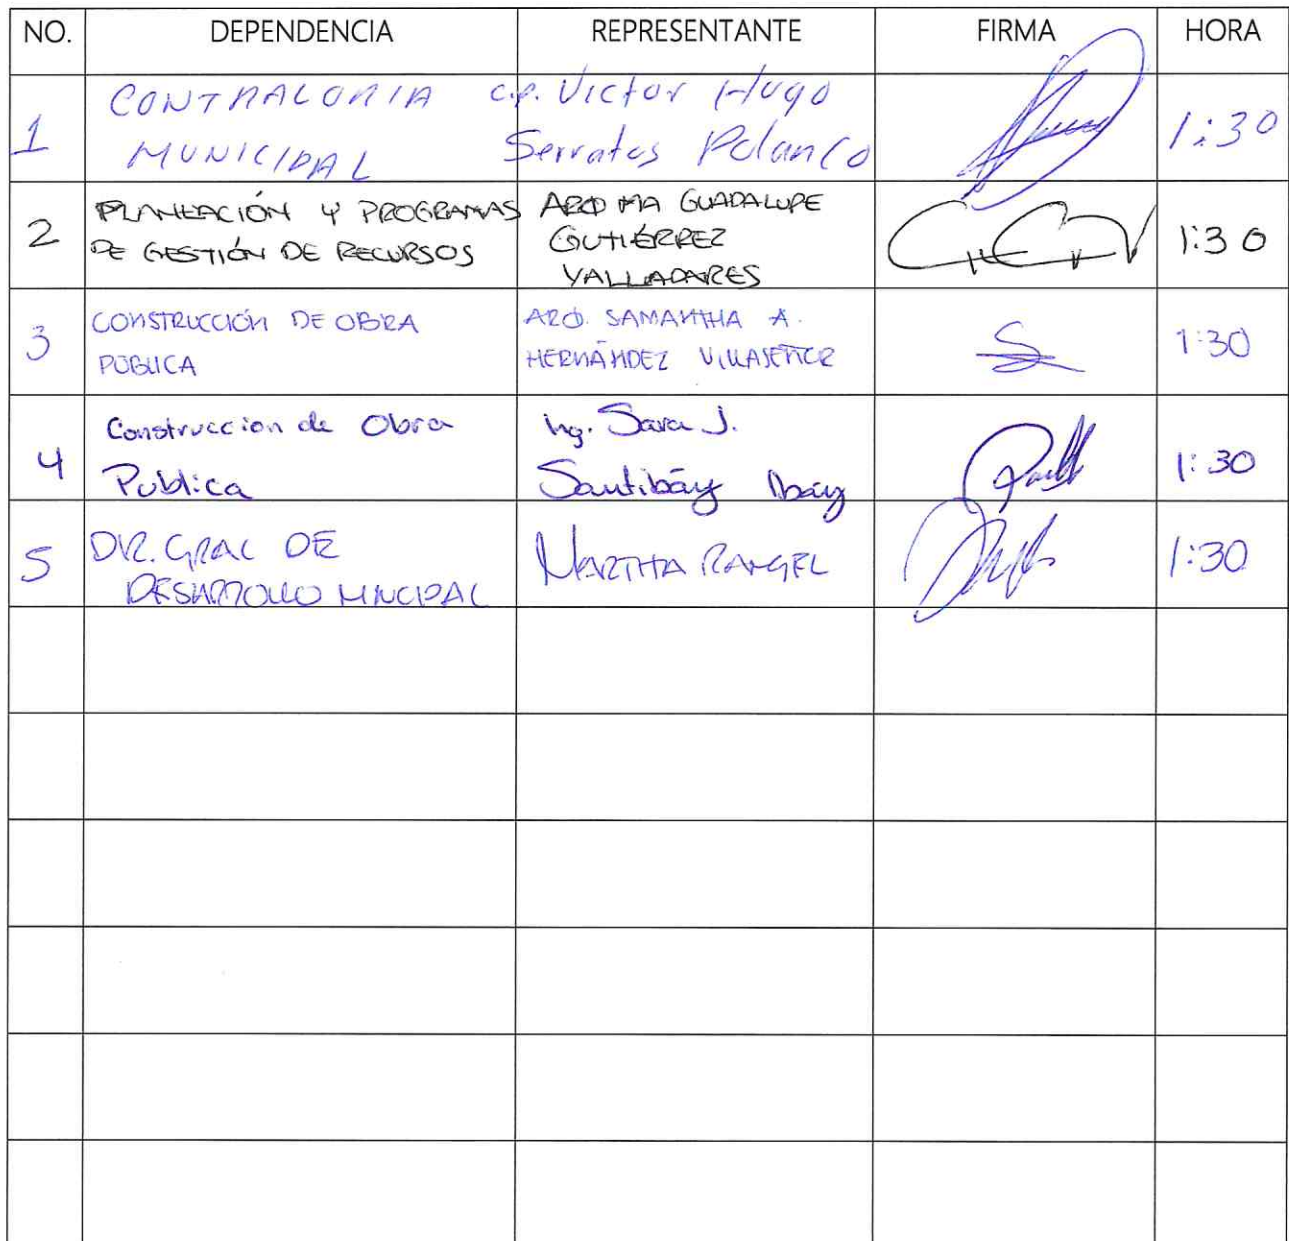 NO. DEPENDENCIA REPRESENTANTE FIRMA HORA
1 CONTRALORIA MUNICIPAL C.P. Victor Hugo Serratos Polanco 1:30
2 PLANEACIÓN Y PROGRAMAS DE GESTIÓN DE RECURSOS ARQ MA GUADALUPE GUTIÉRREZ VALLADARES 1:30
3 CONSTRUCCIÓN DE OBRA PUBLICA ARQ. SAMANTHA A. HERNÁNDEZ VILLASEÑOR 1:30
4 Construccion de Obra Publica Ing. Sara J. 1:30
5 DIR. GRAL DE DESARROLLO MARTHA RANGEL 1:30